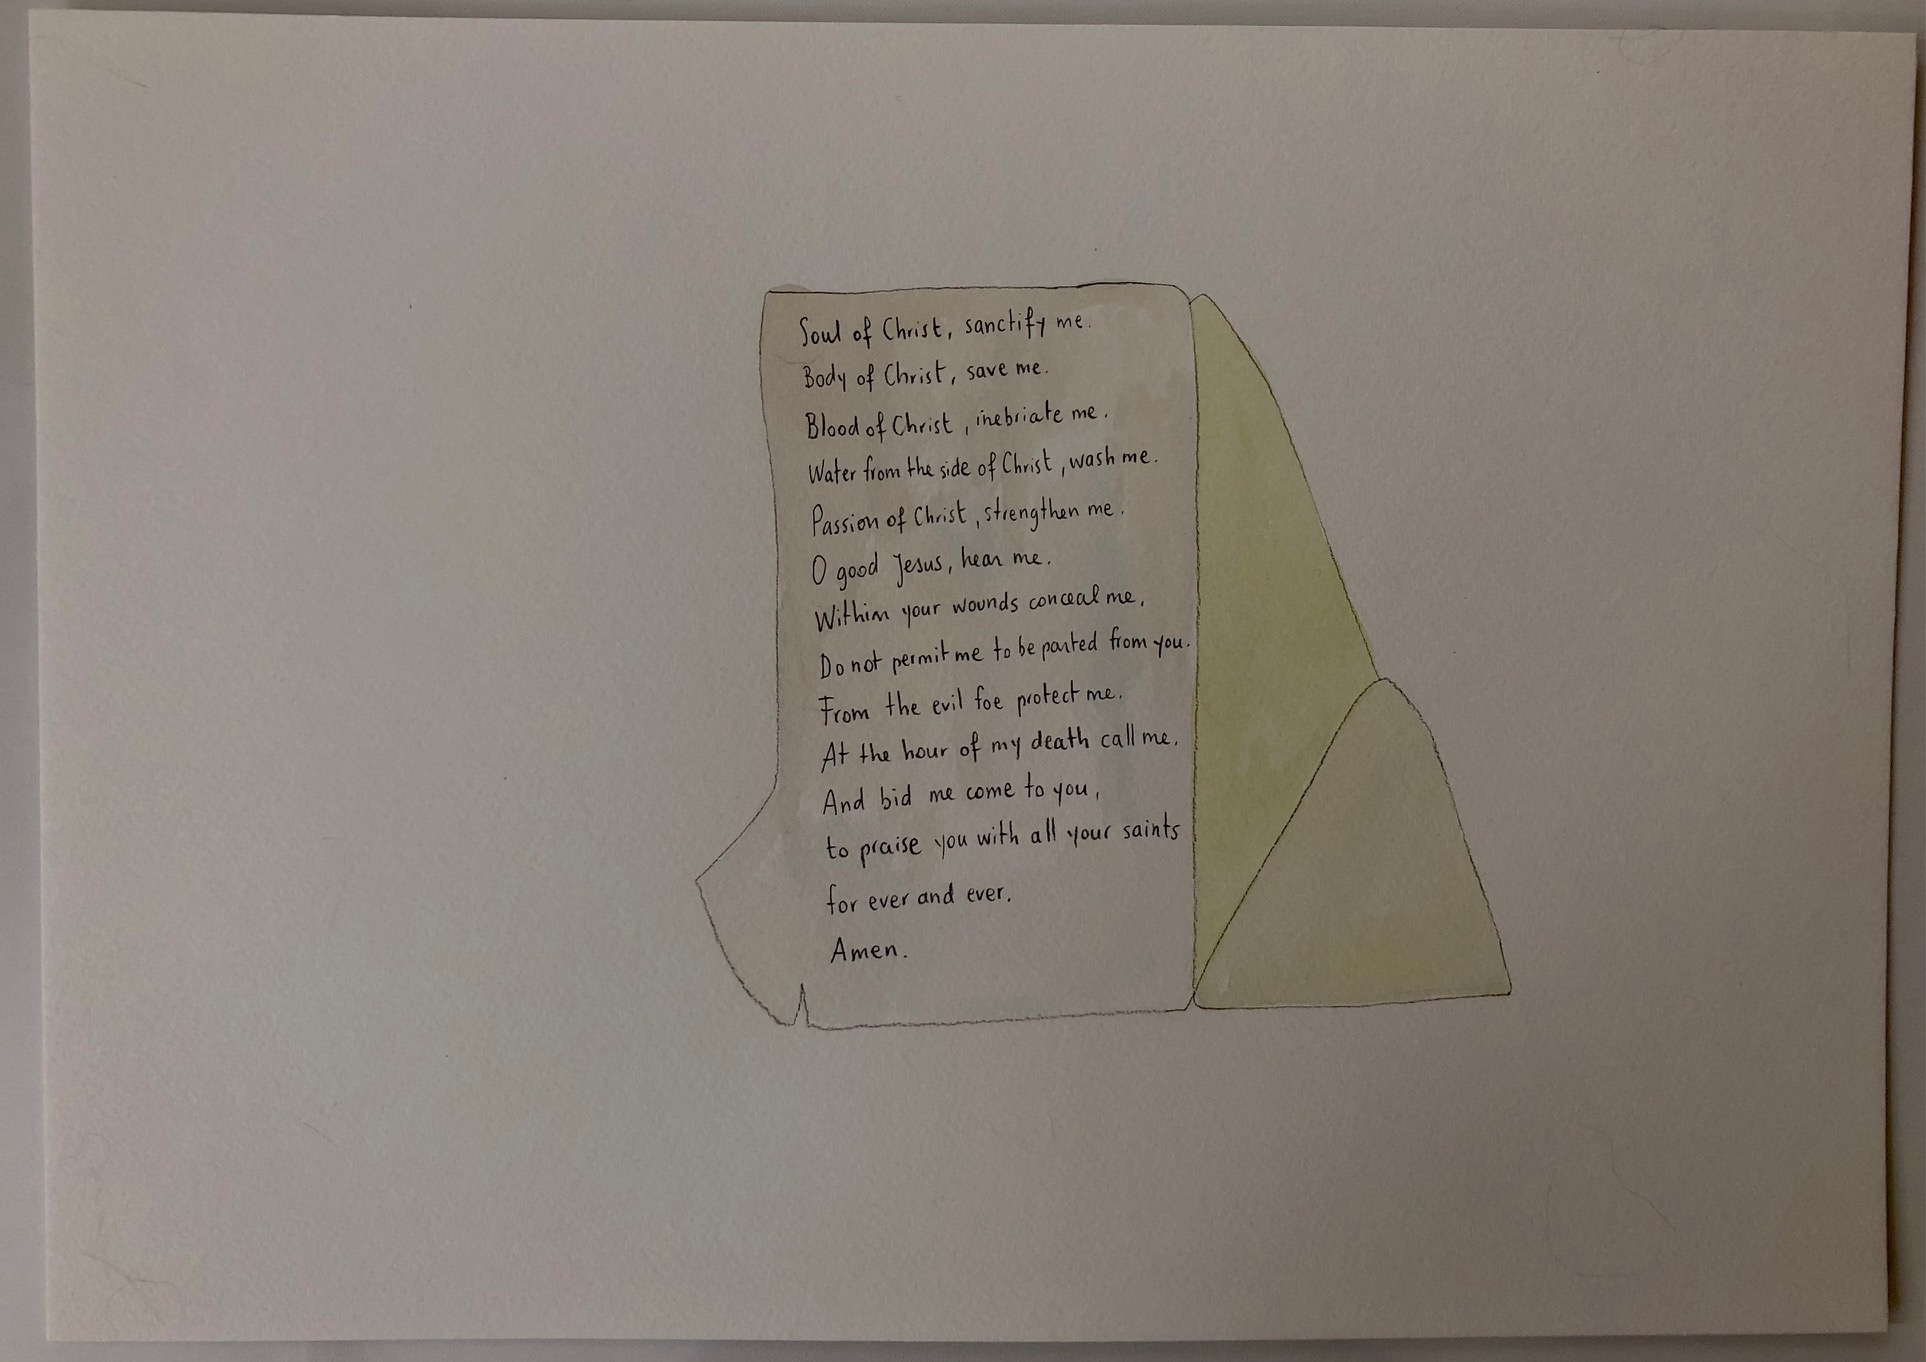 Soul of Christ, sanctify me.
Body of Christ, save me.
Blood of Christ, inebriate me.
Water from the side of Christ, wash me.
Passion of Christ, strengthen me.
O good Jesus, hear me.
Within your wounds conceal me,
Do not permit me to be parted from you.
From the evil foe protect me.
At the hour of my death call me,
And bid me come to you,
to praise you with all your saints
for ever and ever.
Amen.